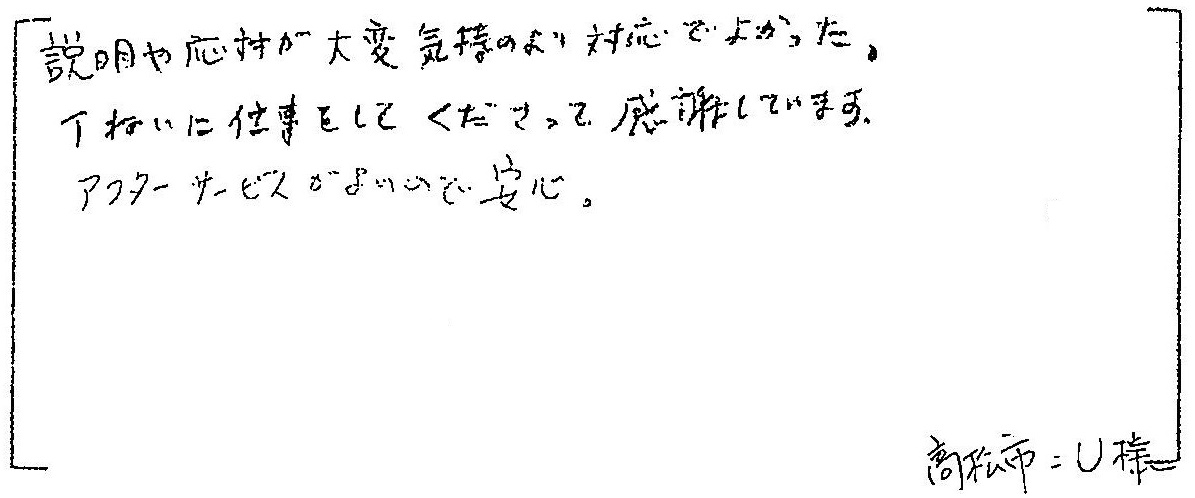 説明や応対が大変気持のよい対応でよかった。
丁ねいに仕事をしてくださって感謝しています。
アフターサービスがよいので安心。
高松市:U様